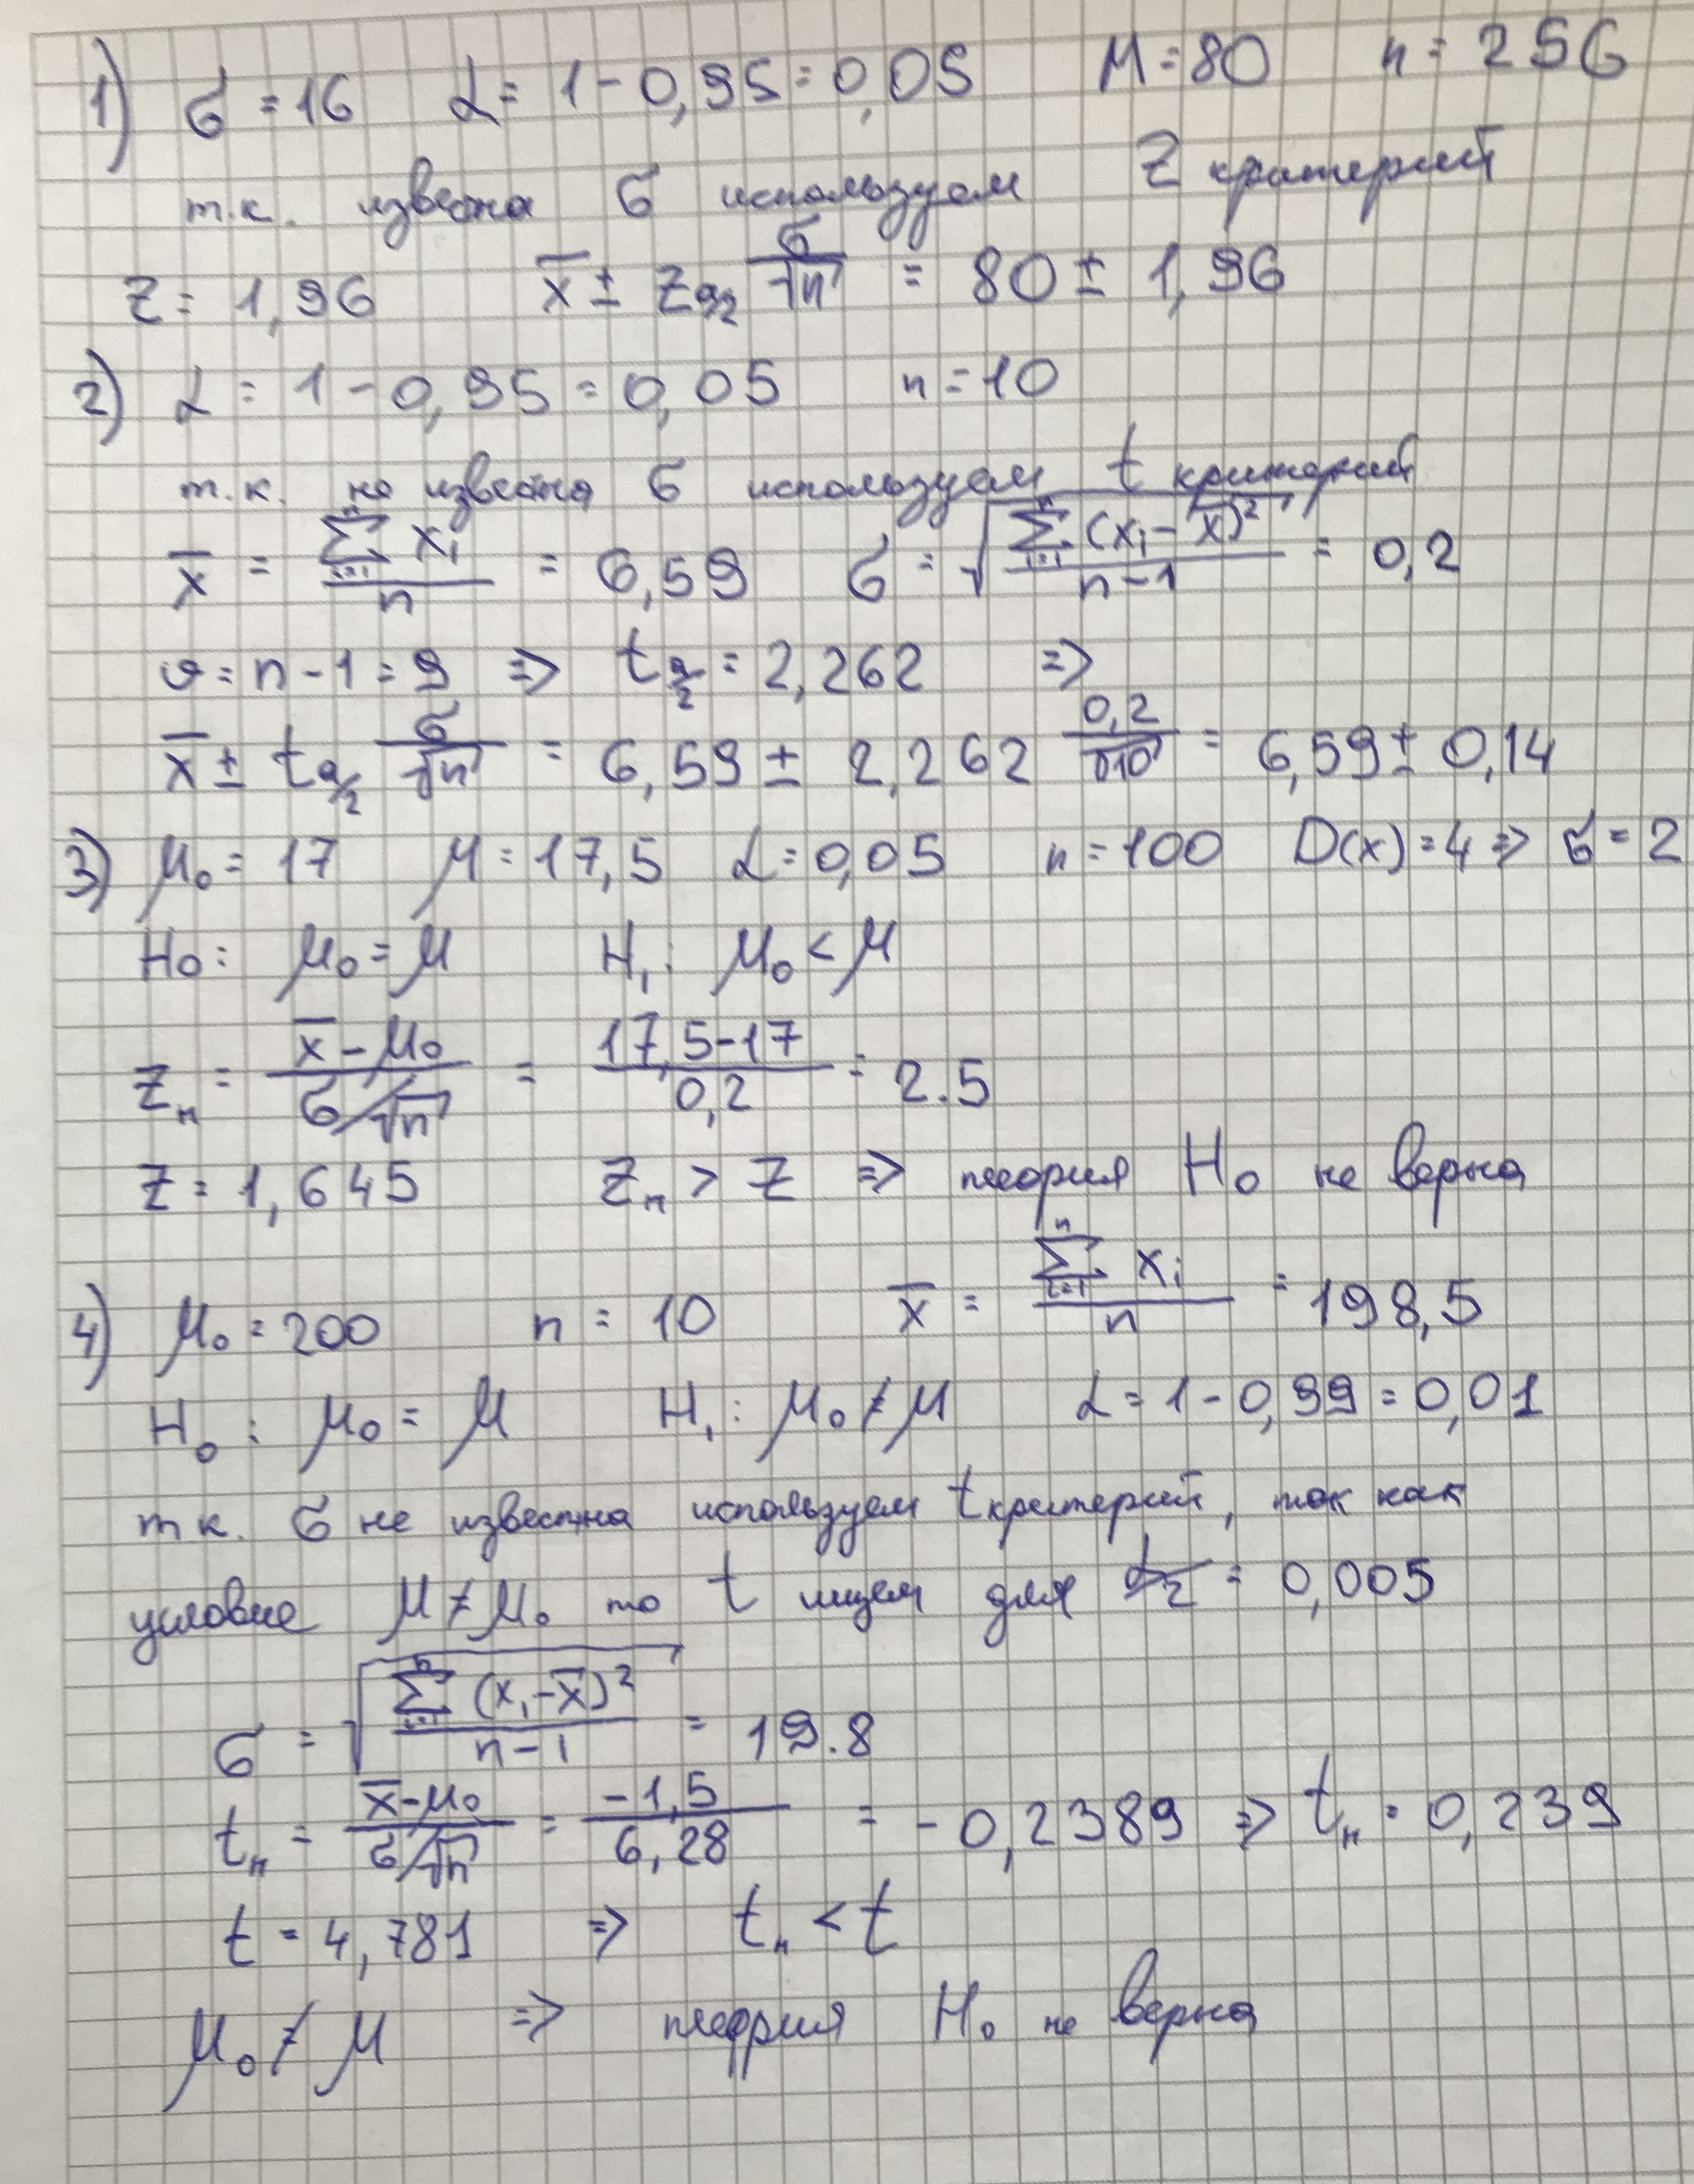 1) σ = 16 α = 1 - 0,95 = 0,05 M = 80 n = 256
т.к. известна σ используем Z критерий
Z = 1,96 x̄ ± Z α/2 σ/√n = 80 ± 1,96
2) α = 1 - 0,95 = 0,05 n = 10
т.к. не известна σ используем t критерий
x̄ = ∑ᵢ₌₁ⁿ xᵢ / n = 6,59 σ = √(∑ᵢ₌₁ⁿ (xᵢ - x̄)² / n-1) = 0,2
ϑ = n - 1 = 9 => t α/2 = 2,262 =>
x̄ ± t α/2 σ/√n = 6,59 ± 2,262 0,2/√10 = 6,59 ± 0,14
3) μ₀ = 17 μ = 17,5 α = 0,05 n = 100 D(x) = 4 => σ = 2
H₀: μ₀ = μ H₁: μ₀ < μ
Zн = x̄ - μ₀ / σ/√n = 17,5 - 17 / 0,2 = 2.5
Z = 1,645 Zн > Z => теория H₀ не верна
4) μ₀ = 200 n = 10 x̄ = ∑ᵢ₌₁ⁿ xᵢ / n = 198,5
H₀: μ₀ = μ H₁: μ₀ ≠ μ α = 1 - 0,99 = 0,01
т к. σ не известна используем t критерий, так как
условие μ ≠ μ₀ то t ищем для α/2 = 0,005
σ = √(∑ᵢ₌₁ⁿ (xᵢ - x̄)² / n-1) = 19.8
tн = x̄ - μ₀ / σ/√n = -1,5 / 6,28 = -0,2389 => tн = 0,239
t = 4,781 => tн < t
μ₀ ≠ μ => теория H₀ не верна